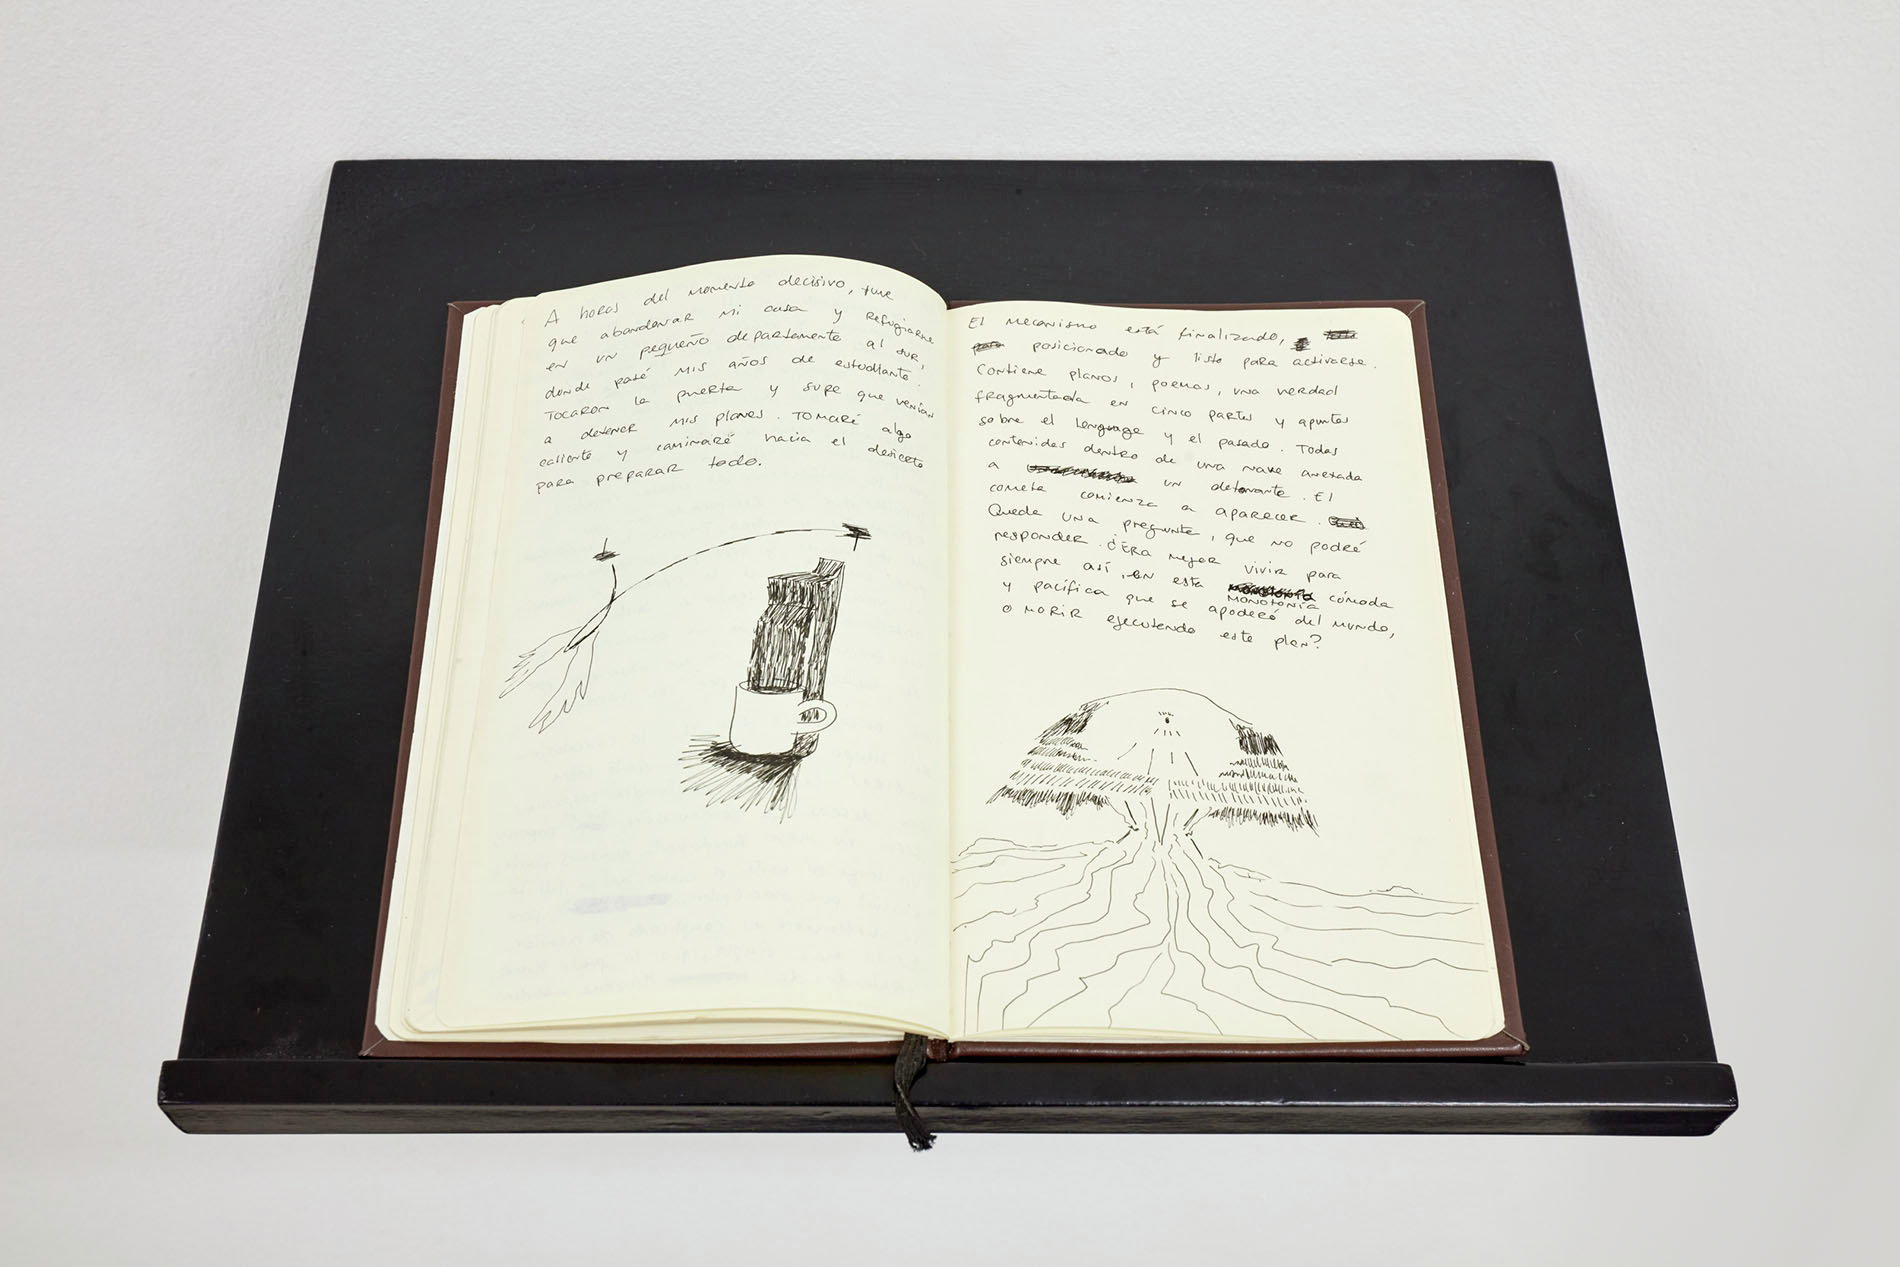 A horas del momento decisivo, tuve
que abandonar mi casa y refugiarme
en un pequeño departamento al sur,
donde pasé mis años de estudiante.
Tocaron la puerta y supe que venían
a detener mis planes. Tomaré algo
caliente y caminaré hacia el desierto
para preparar todo.
El mecanismo está finalizado,
posicionado y listo para activarse.
Contiene planos, poemas, una verdad
fragmentada en cinco partes y apuntes
sobre el lenguage y el pasado. Todas
contenidas dentro de una nave anexada
a un detonante. El
cometa comienza a aparecer.
Queda una pregunta, que no podré
responder. ¿Era mejor vivir para
siempre así, en esta monotonía cómoda
y pacífica que se apoderó del mundo,
o morir ejecutando este plan?